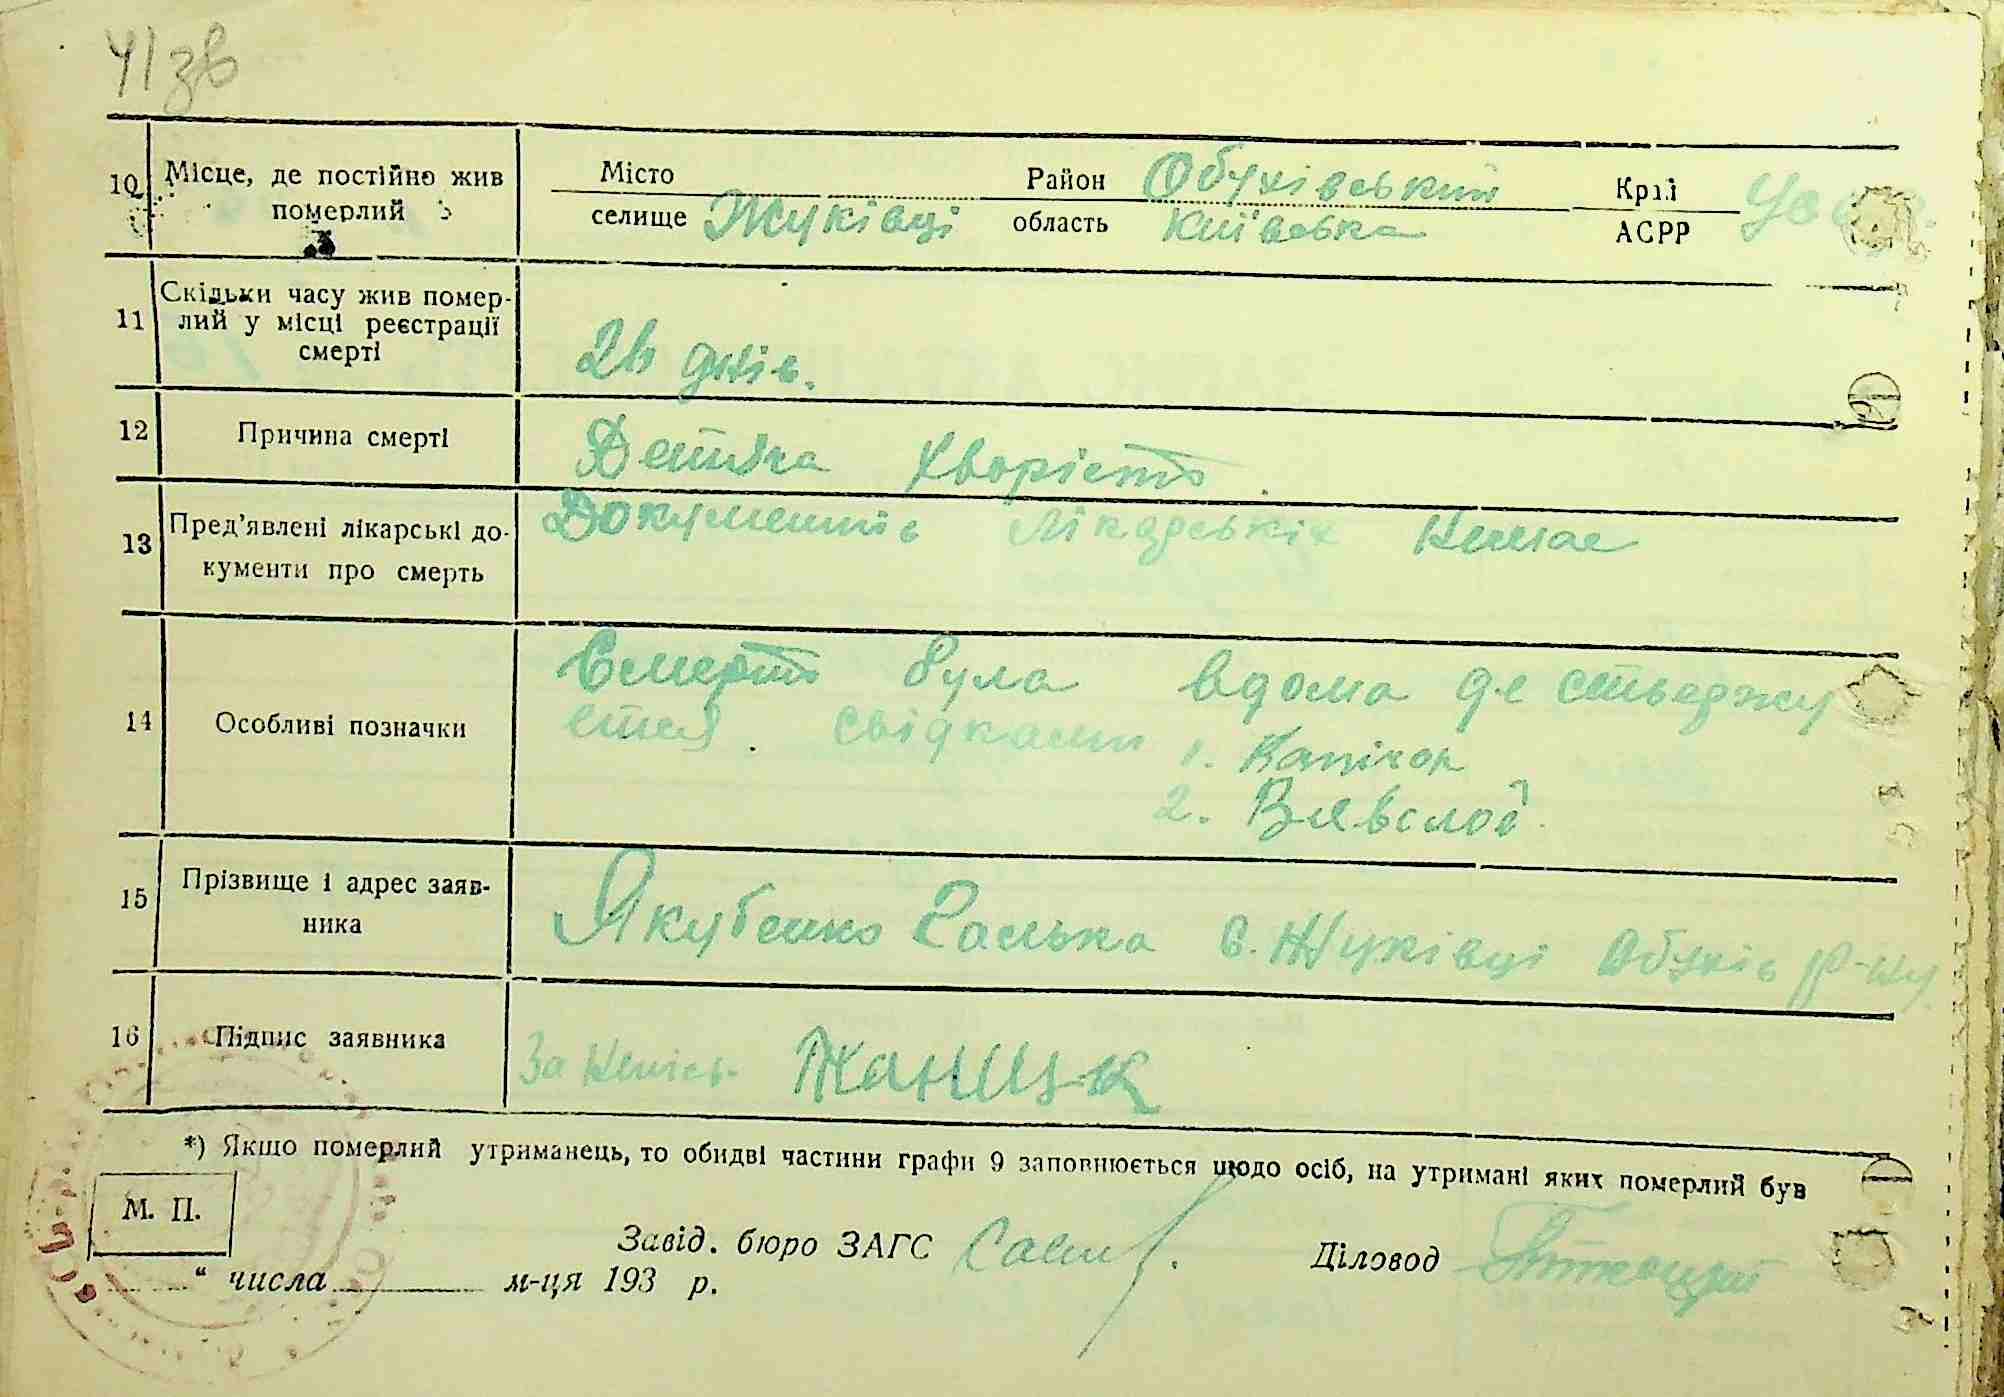 41зв
10 Місце, де постійно жив померлий Місто Район Обухівський Край
селище Жуківці область Київська АСРР
11 Скільки часу жив помер-
лий у місці реєстрації
смерті
26 днів.
12 Причина смерті Детяча хворість.
13 Пред'явлені лікарські до-
кументи про смерть
Документів лікарських немае
14 Особливі позначки
Смерть була вдома де ствержу
ется свідками 1.
2.
15 Прізвище і адрес заяв-
ника
Якубенко Галька с. Жуківці Обухів р-ну
16 Підпис заявника За непись.
*) Якщо померлий утриманець, то обидві частини графи 9 заповнюється щодо осіб, на утримані яких померлий був
М. П.
Завід. бюро ЗАГС Діловод
“ числа м-ця 193 р.